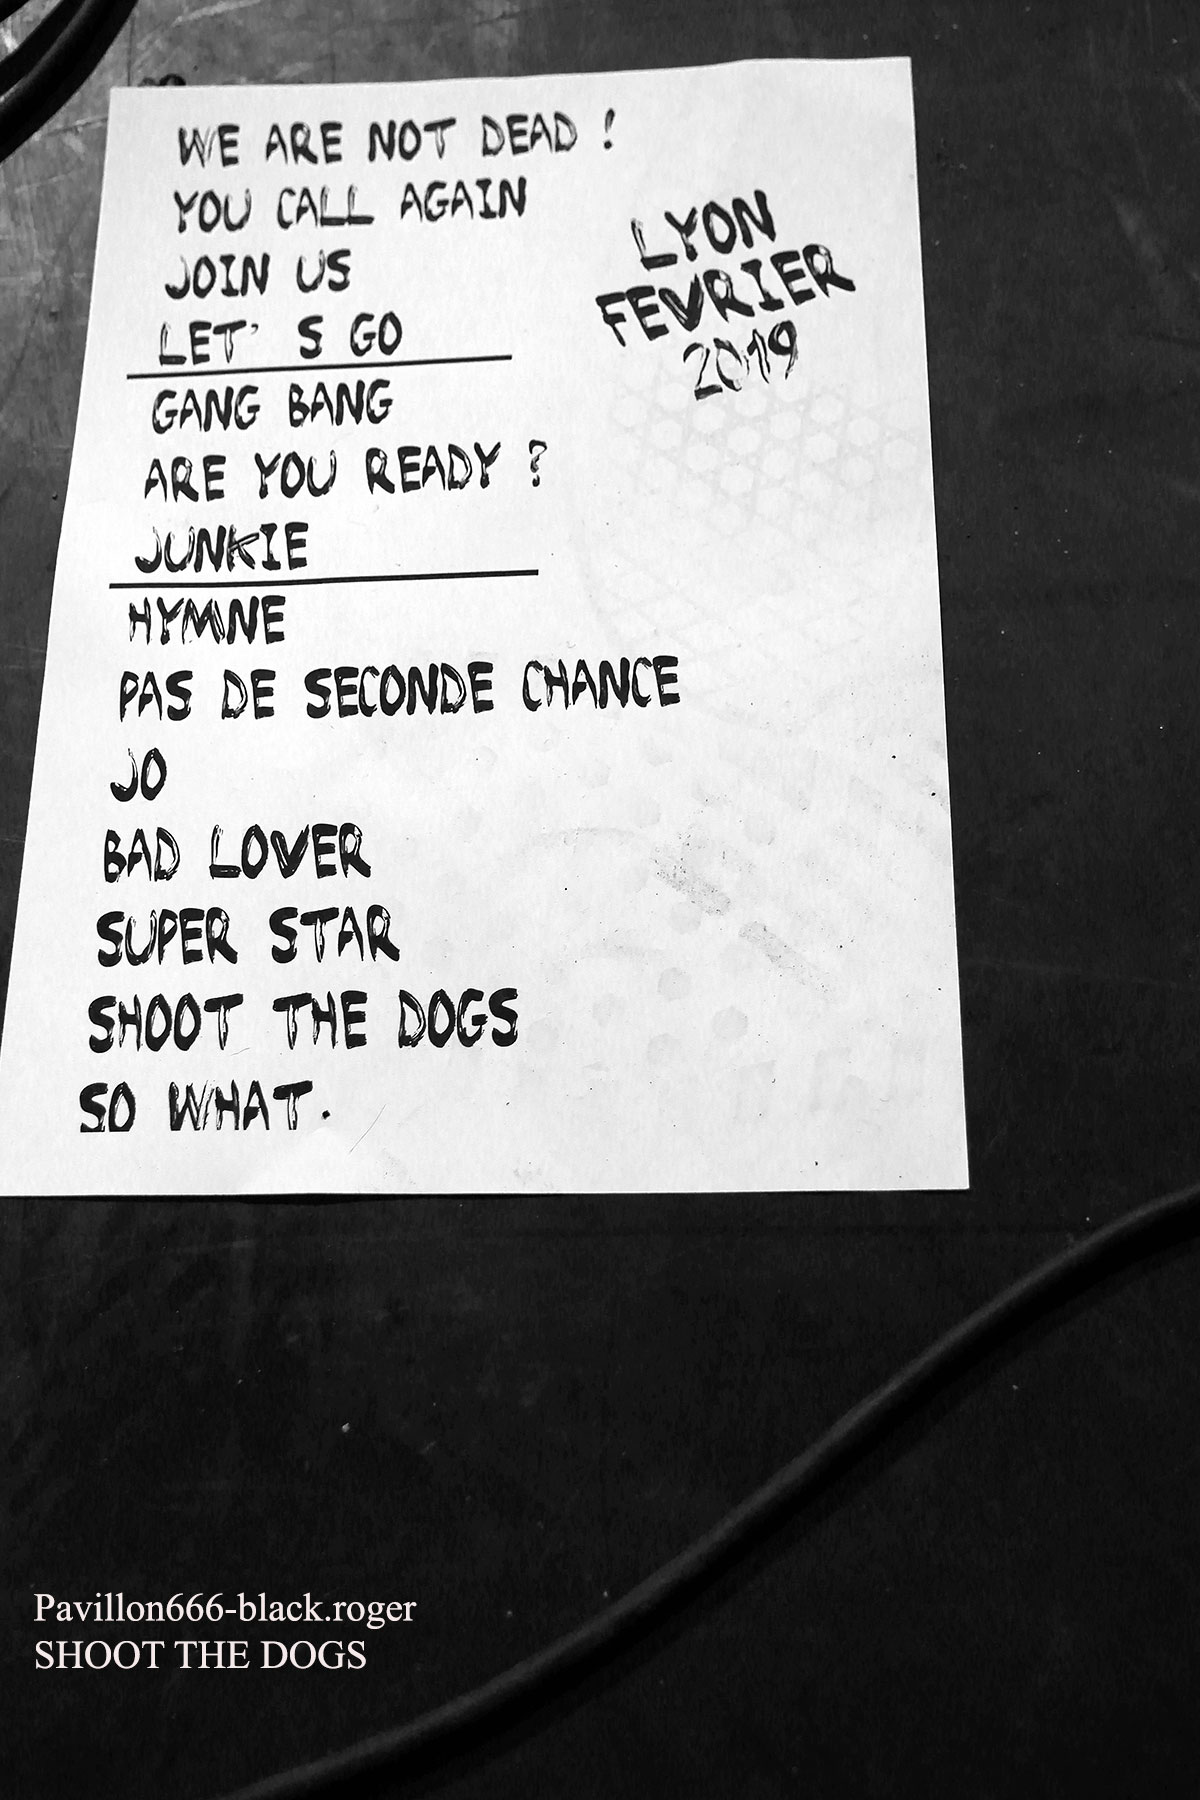 WE ARE NOT DEAD !
YOU CALL AGAIN
JOIN US
LET' S GO
GANG BANG
ARE YOU READY ?
JUNKIE
HYMNE
PAS DE SECONDE CHANCE
JO
BAD LOVER
SUPER STAR
SHOOT THE DOGS
SO WHAT.
LYON
FEVRIER
2019
Pavillon666-black.roger
SHOOT THE DOGS